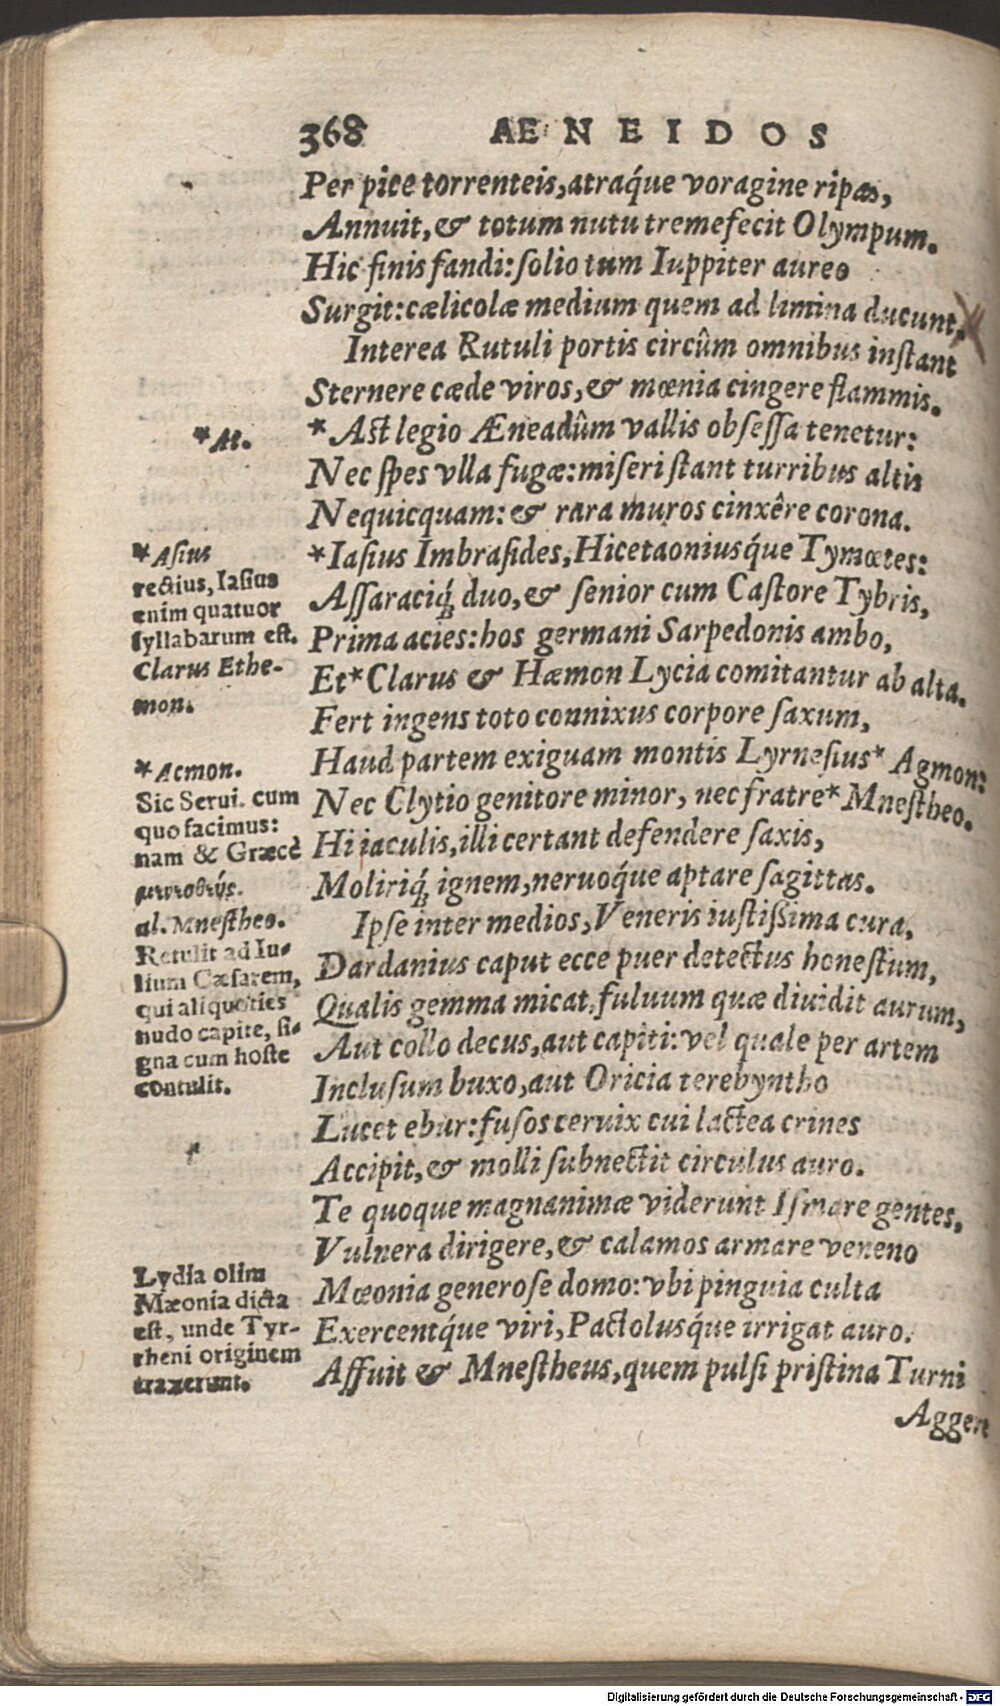 368 AENEIDOS
Per pice torrenteis, atraq́ue voragine ripas,
Annuit, & totum nutu tremefecit Olympum.
Hic finis fandi: solio tum Iuppiter aureo
Surgit: cælicolæ medium quem ad limina ducunt.
Interea Rutuli portis circûm omnibus instant
Sternere cæde viros, & mœnia cingere flammis.
*At.
* Ast legio Æneadûm vallis obsessa tenetur:
Nec spes vlla fugæ: miseri stant turribus altis
Nequicquam: & rara muros cinxêre corona.
*Asius
rectius, Iasius
enim quatuor
syllabarum est.
Clarus Ethe-
mon.
*Iasius Imbrasides, Hicetaoniusq́ue Tymœtes:
Assaraciq́; duo, & senior cum Castore Tybris,
Prima acies: hos germani Sarpedonis ambo,
Et* Clarus & Hæmon Lycia comitantur ab alta.
Fert ingens toto connixus corpore saxum,
*Acmon.
Sic Serui. cum
quo facimus:
nam & Græcè
al. Mnestheo.
Haud partem exiguam montis Lyrnesius* Agmon:
Nec Clytio genitore minor, nec fratre* Mnestheo.
Hi iaculis, illi certant defendere saxis,
Moliriq́; ignem, neruoq́ue aptare sagittas.
Retulit ad Iu-
lium Cæsarem,
qui aliquoties
nudo capite, si-
gna cum hoste
contulit.
Ipse inter medios, Veneris iustissima cura,
Dardanius caput ecce puer detectus honestum,
Qualis gemma micat, fuluum quæ diuidit aurum,
Aut collo decus, aut capiti: vel quale per artem
Inclusum buxo, aut Oricia terebyntho
Lucet ebur: fusos ceruix cui lactea crines
Accipit, & molli subnectit circulus auro.
Te quoque magnanimæ viderunt Ismare gentes,
Vulnera dirigere, & calamos armare veneno
Lydia olim
Mæonia dicta
est, unde Tyr-
rheni originem
traxerunt.
Mœonia generose domo: vbi pinguia culta
Exercentq́ue viri, Pactolusq́ue irrigat auro.
Affuit & Mnestheus, quem pulsi pristina Turni
Aggere
Digitalisierung gefördert durch die Deutsche Forschungsgemeinschaft - DFG